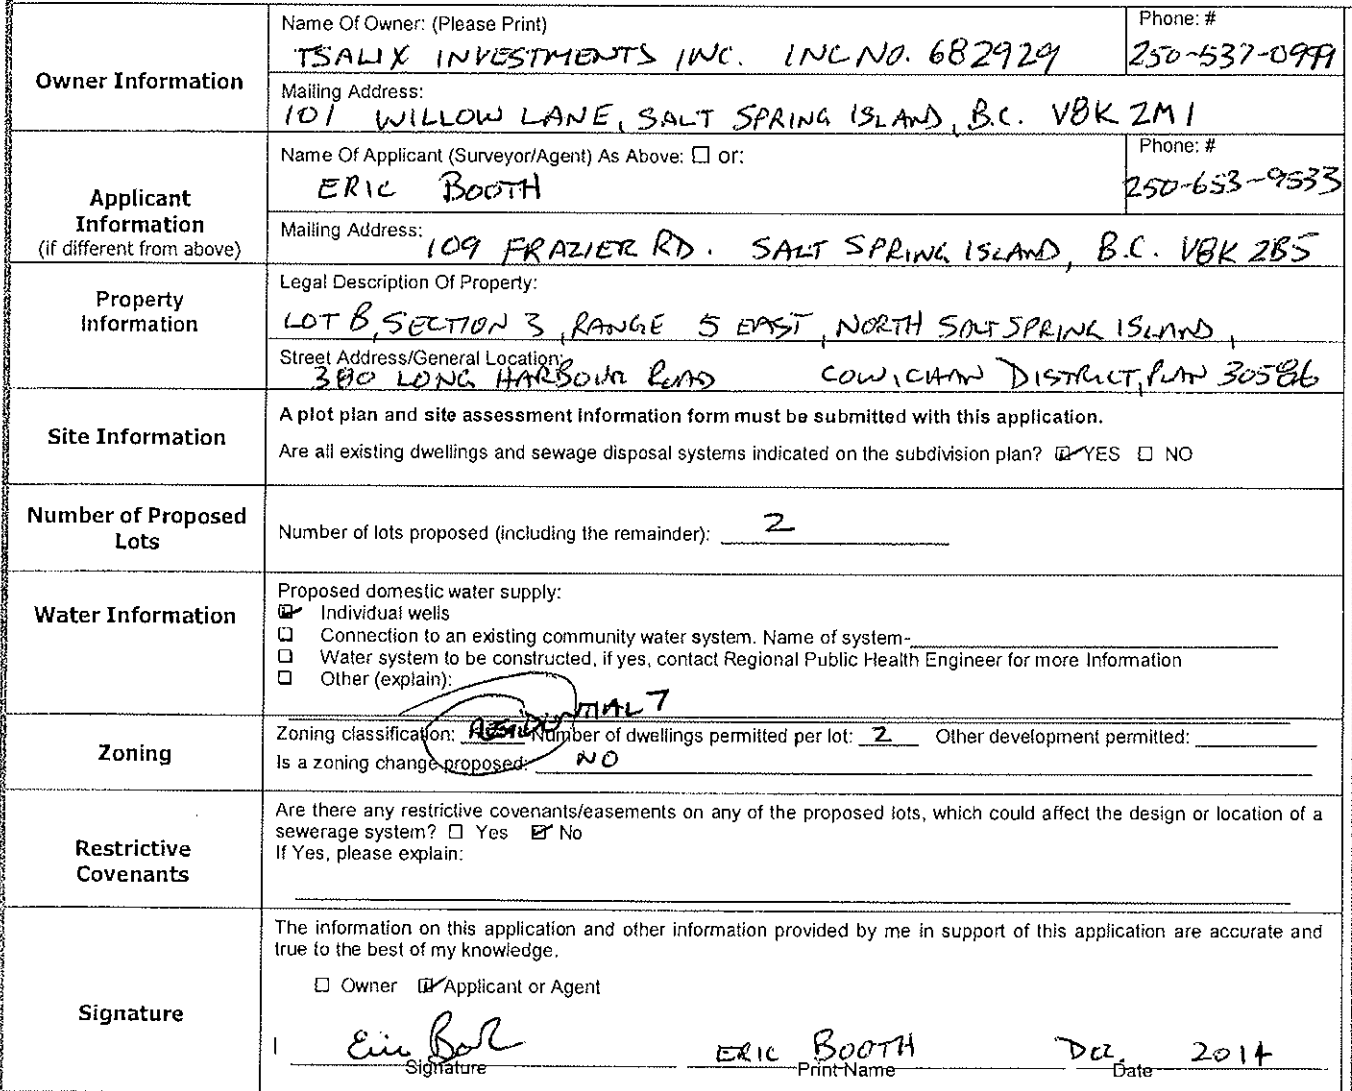 Owner Information
Name Of Owner: (Please Print)
TSALIX INVESTMENTS INC. INC NO. 682929
Phone: #
250-537-0999
Mailing Address:
101 WILLOW LANE, SALT SPRING ISLAND, B.C. V8K 2M1
Applicant Information
(if different from above)
Name Of Applicant (Surveyor/Agent) As Above: ☐ or:
ERIC BOOTH
Phone: #
250-653-9533
Mailing Address: 109 FRAZIER RD. SALT SPRING ISLAND, B.C. V8K 2B5
Property Information
Legal Description Of Property:
LOT B, SECTION 3, RANGE 5 EAST, NORTH SALT SPRING ISLAND,
Street Address/General Location:
380 LONG HARBOUR ROAD COWICHAN DISTRICT, PLAN 30586
Site Information
A plot plan and site assessment information form must be submitted with this application.
Are all existing dwellings and sewage disposal systems indicated on the subdivision plan? ☑ YES ☐ NO
Number of Proposed Lots
Number of lots proposed (including the remainder): 2
Water Information
Proposed domestic water supply:
☑ Individual wells
☐ Connection to an existing community water system. Name of system-
☐ Water system to be constructed, if yes, contact Regional Public Health Engineer for more Information
☐ Other (explain):
Zoning
Zoning classification: RESIDENTIAL 7 Number of dwellings permitted per lot: 2 Other development permitted:
Is a zoning change proposed: NO
Restrictive Covenants
Are there any restrictive covenants/easements on any of the proposed lots, which could affect the design or location of a
sewerage system? ☐ Yes ☑ No
If Yes, please explain:
Signature
The information on this application and other information provided by me in support of this application are accurate and
true to the best of my knowledge.
☐ Owner ☑ Applicant or Agent
Eric Booth ERIC BOOTH Dec. 2014
Signature Print Name Date